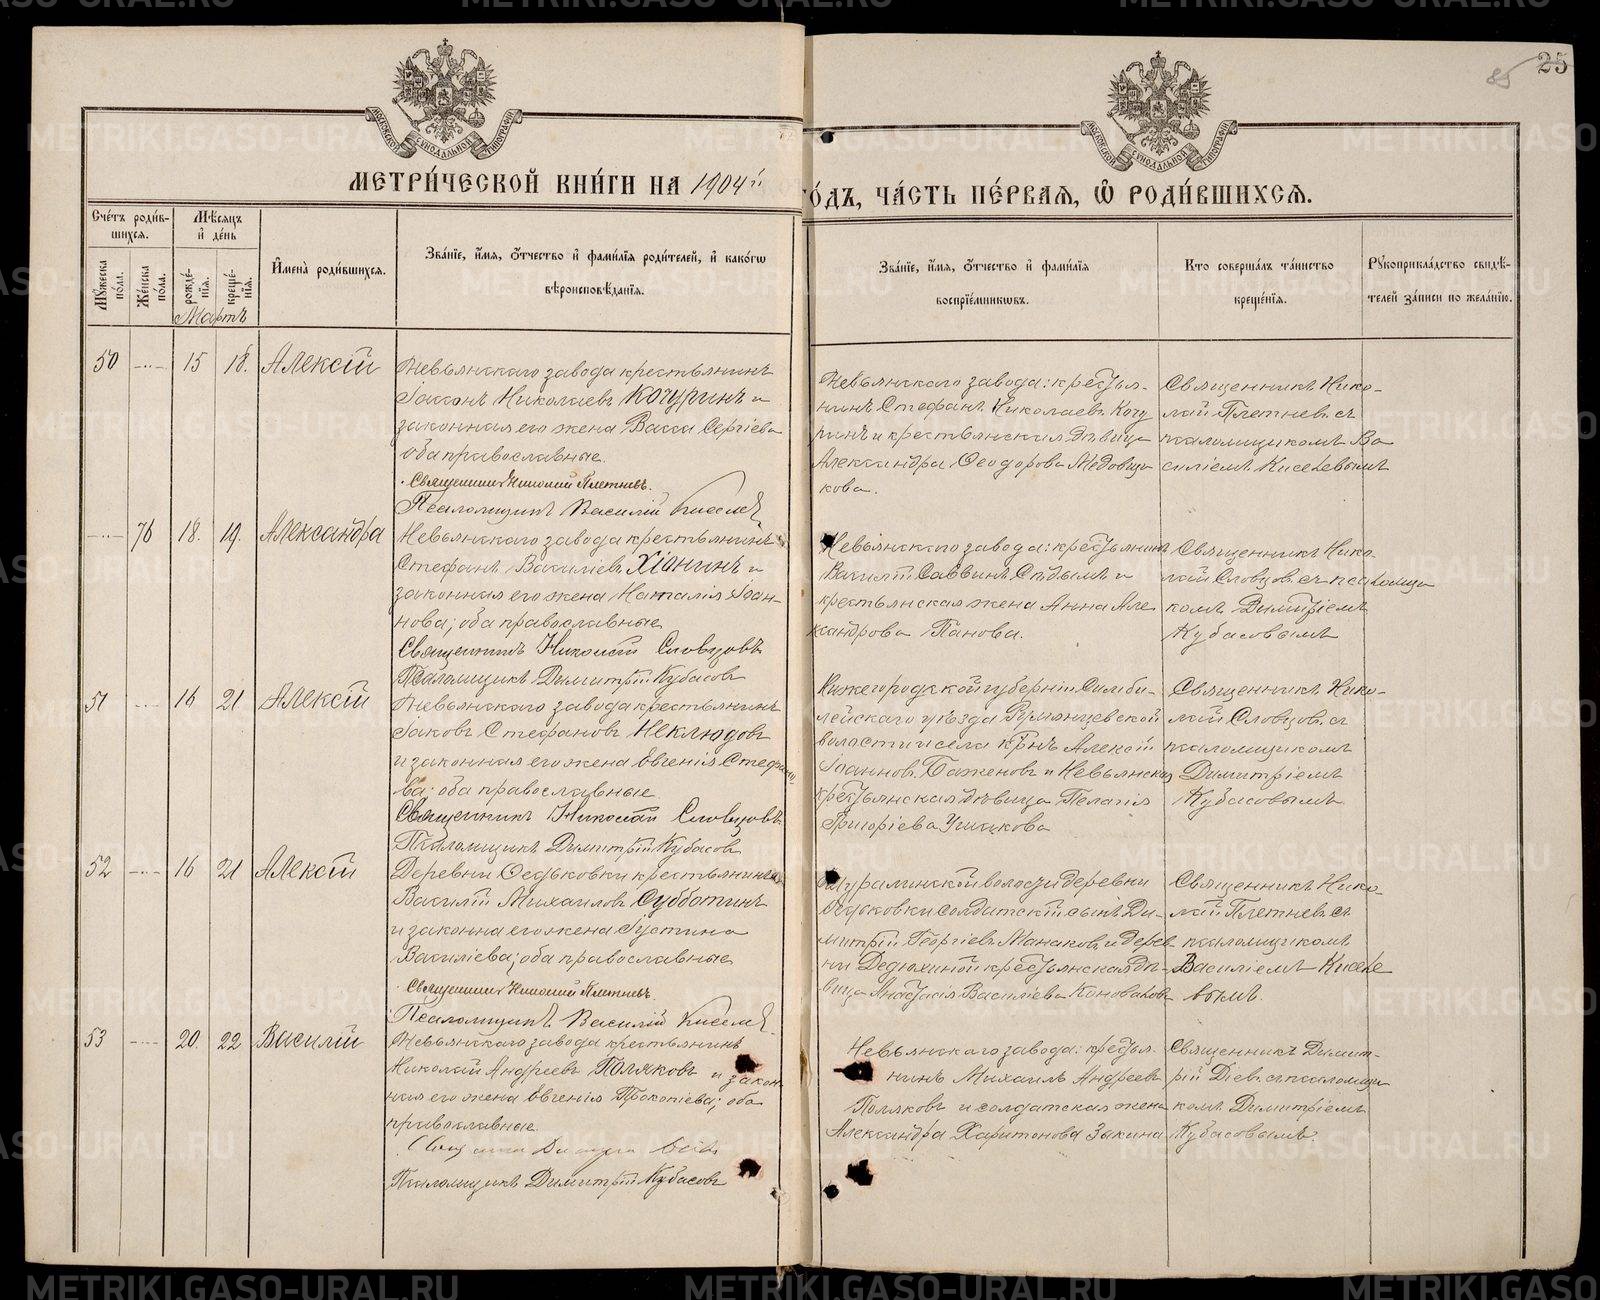 25
85
МОСКОВСКОЙ СѴНОДАЛЬНОЙ ТИПОГРАФІИ
МОСКОВСКОЙ СѴНОДАЛЬНОЙ ТИПОГРАФІИ
МЕТРИ́ЧЕСКОЙ КНИ́ГИ НА 1904й ГО́ДЪ, ЧА́СТЬ ПЕ́РВАЯ, Ѡ҆ РОДИ́ВШИХСЯ.
Сче́тъ роди́вшихся.
Му́жеска по́ла.
Же́нска по́ла.
Мѣ́сяцъ и҆ де́нь
рожде́нїя.
креще́нїя.
Мартъ
И҆мена̀ роди́вшихся.
Зва́нїе, и҆́мя, ѻ҆́тчество и҆ фами́лїя роди́телей, и҆ како́гѡ
вѣроисповѣ́данїя.
Зва́нїе, и҆́мя, ѻ҆́тчество и҆ фами́лїя
воспрїе́мникѡвъ.
Кто соверша́лъ та́инство
креще́нїя.
Рукоприкла́дство свидѣ́-
телей за́писи по жела́нїю.
50 15 18. Алексій
Невьянскаго завода крестьянинъ
Николаевъ Кочуринъ и
законная его жена Васса Сергіева
оба православные.
Священникъ Николай Плетневъ.
Псаломщикъ Василій Киселевъ
Невьянскаго завода: крестья-
нинъ Стефанъ Николаевъ Кочу
ринъ и крестьянская дѣвица
Александра Ѳеодорова Медовщи
кова.
Священникъ Нико-
лай Плетневъ съ
псаломщикомъ Ва
силіемъ Киселевымъ
76 18. 19. Александра
Невьянскаго завода крестьянинъ
Стефанъ Василіевъ Хіонинъ и
законная его жена Наталія Іоан-
нова; оба православные
Священникъ Николай Словцовъ
Псаломщикъ Димитрій Кубасовъ
Невьянскаго завода: крестьянинъ
Василій Саввинъ и
крестьянская жена Анна Але
ксандрова Панова.
Священникъ Нико-
лай Словцовъ съ псаломщи
комъ Димитріемъ
Кубасовымъ
51 16 21 Алексій
Невьянскаго завода крестьянинъ
Іаковъ Стефановъ Неклюдовъ
и законная его жена Евгенія Стефано
ва; оба православные
Священникъ Николай Словцовъ
Псаломщикъ Димитрій Кубасовъ
Нижегородской губерніи
уѣзда
волости и села Алексій
Іоанновъ Баженовъ и Невьянская
крестьянская дѣвица Пелагія
Григоріева
Священникъ Нико-
лай Словцовъ съ
псаломщикомъ
Димитріемъ
Кубасовымъ
52 16 21 Алексій
Деревни Ѳедьковки крестьянинъ
Василій Михаиловъ Субботинъ
и законна его жена Іустина
Василіева; оба православные
Священникъ Николай Плетневъ.
Псаломщикъ Василій Киселевъ
Шуралинской волости деревни
Ѳедьковки солдатскій сынъ Ди-
митрій Георгіевъ Манаковъ и дерев
ни Дедюхиной крестьянская дѣ-
вица Анастасія Василіева Коновалова
Священникъ Нико-
лай Плетневъ съ
псаломщикомъ
Василіемъ Киселе
вымъ.
53 20. 22 Василій
Невьянскаго завода крестьянинъ
Николай Андреевъ Поляковъ и закон
ная его жена Евгенія Прокопіева; оба
православные.
Псаломщикъ Димитрій Кубасовъ
Невьянскаго завода: крестья-
нинъ Михаилъ Андреевъ
Поляковъ и солдатская жена
Александра Харитонова Зыкина
Священникъ Димит-
рій Діевъ съ псаломщи
комъ Димитріемъ
Кубасовымъ.
METRIKI.GASO-URAL.RU